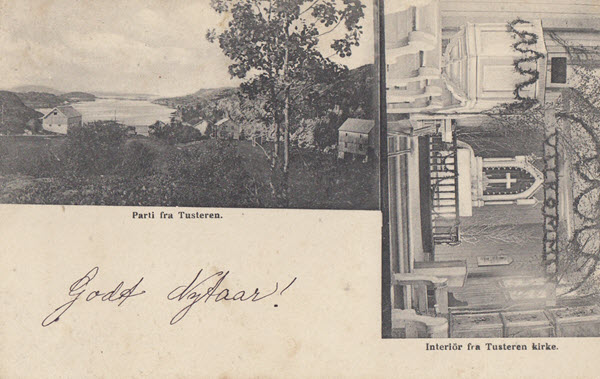 Parti fra Tusteren.
Godt Nytaar!
Interiör fra Tusteren kirke.